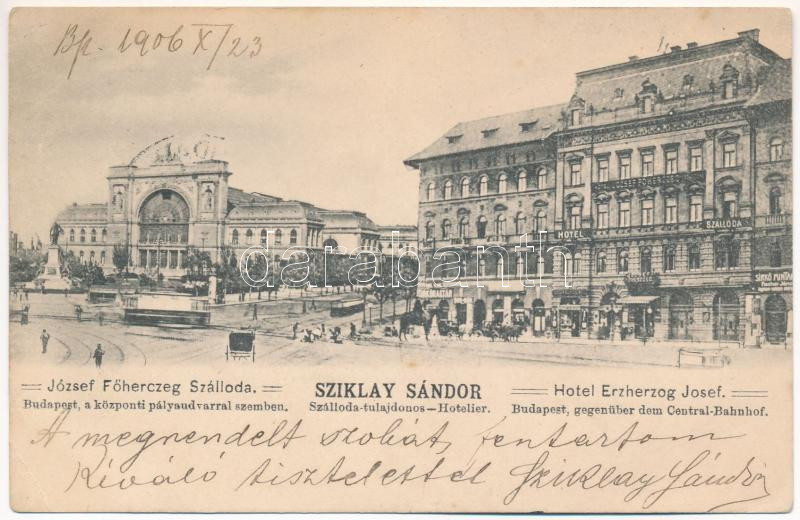 Bp. 1906 X/23
HOTEL
SZÁLLODA
darabanth
József Főherczeg Szálloda.
Budapest, a központi pályaudvarral szemben.
SZIKLAY SÁNDOR
Szálloda-tulajdonos—Hotelier.
Hotel Erzherzog Josef.
Budapest, gegenüber dem Central-Bahnhof.
A megrendelt szobát, fentartom
Kiváló tisztelettel Sziklay Sándor